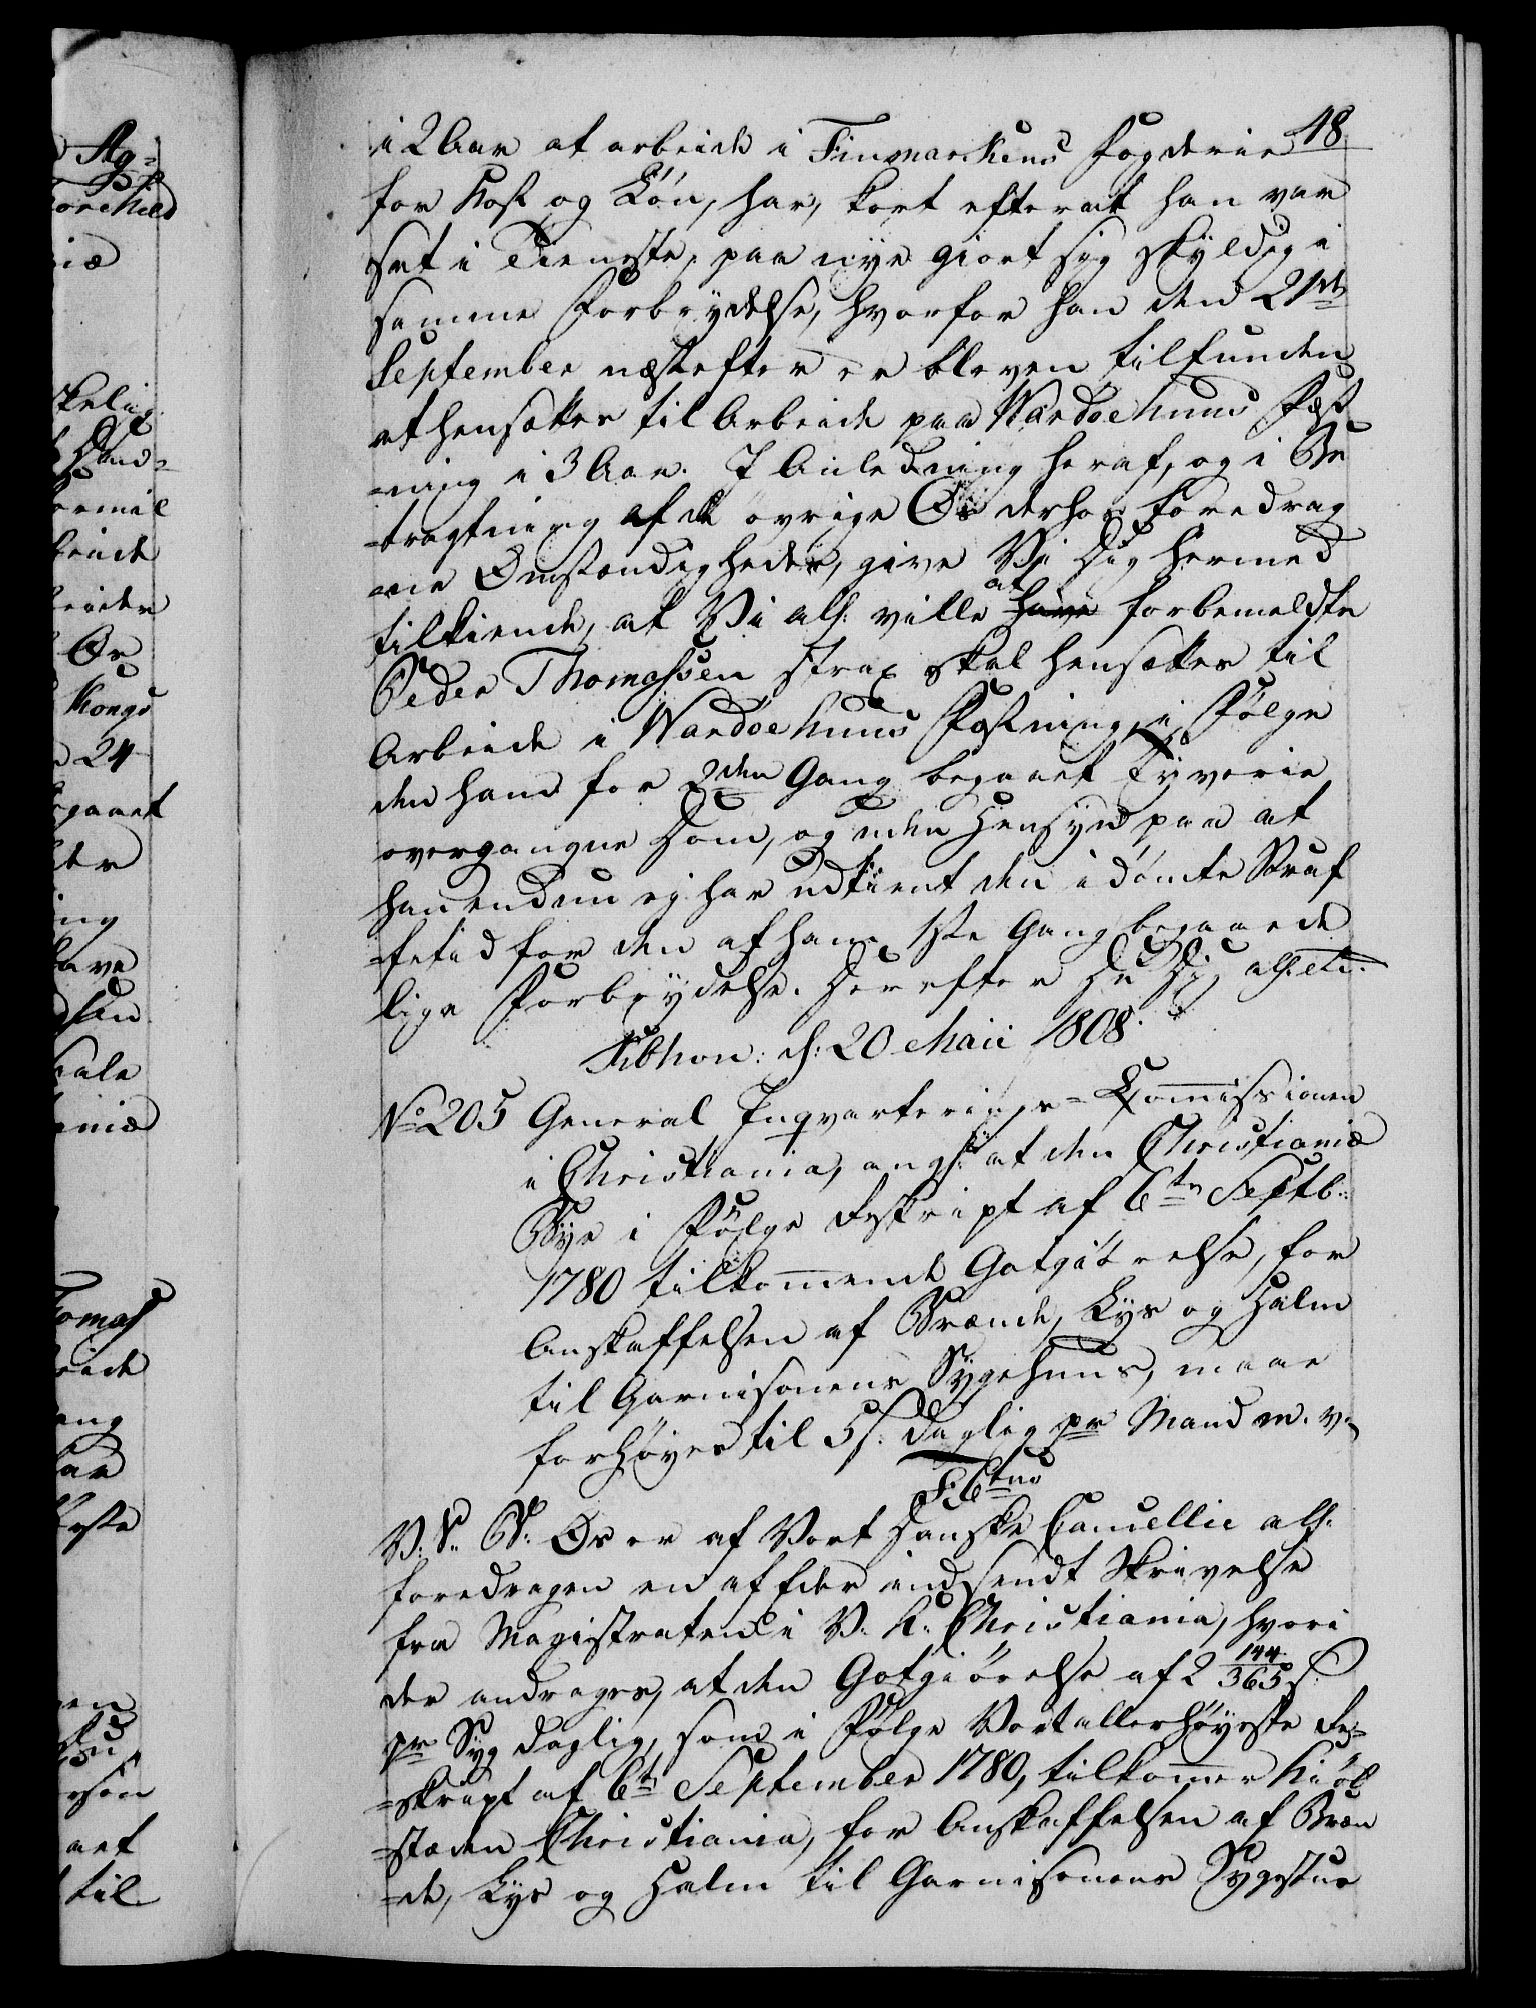 18
i 2 Aar at arbeide i Finmarkens Fogderie
for Kost og Løn, har, kort efterat han var
sat i Tieneste, paa nye giort sig skyldig i
samme Forbrydelse, hvorfor han den 21de
September næstefter er bleven tilfunden
at hensættes til Arbeide paa Wardøehuus Fæst
=ning i 3 Aar. I Anledning heraf, og i Be
=tragtning af de øvrige Os derhos foredrag
=ne Omstændigheder, give Vi Dig hermed
tilkiende, at Vi all: ville at have forbemeldte
Peder Thomassen strax skal hensættes til
Arbeide i Wardøehuus Fæstning, i Følge
den ham for 2den Gang begaaet Tyverie
overgangne Dom, og uden Hensyn paa at
han endnu ej har udtient den idømte Straf
=fetid for den af ham 1ste Gang begaaede
lige Forbrydelse. Derefter Du Dig all: etc.
Kibhvn: d: 20 Maii 1808.
No 205 General Inqvarterings=Commissionen
i Christiania, angl: at den Christianiæ
Bye i Følge Reskript af 6te Septb:
1780 tilkommende Godtgiørelse, for
Anskaffelsen af Brænde, Lys og Halm
til Garnisonens Sygehuus, maae
forhøyes til 5 s: daglig pr Mand m. v.
F: 6tus
V. S. G. V: Os er af Vort Danske Cancellie all:
foredragen en affder indsendt Skrivelse
fra Magistraten i V. K: Christiania, hvori
der andrages, at den Godtgiørelse af 2 144/365 s:
pr Syg daglig, som i Følge Vort allerhøyeste Re=
=skript af 6te September 1780, tilkommer Kiøb
=stæden Christiania, for Anskaffelsen af Bræn
=de, Lys og Halm til Garnisonens Sygestue